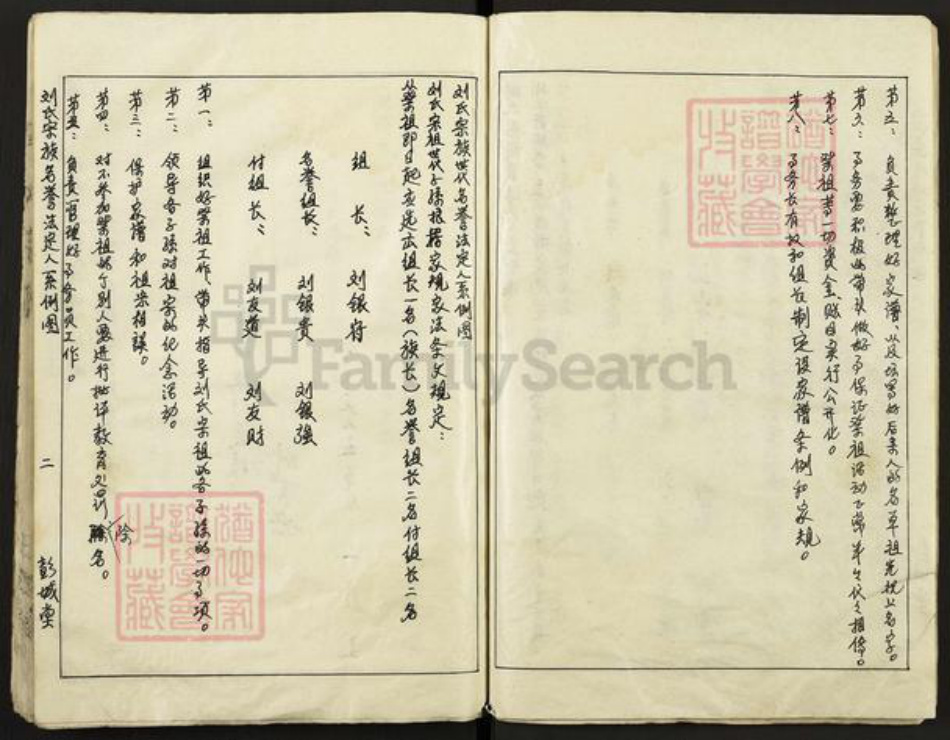 第五：负责整理好家谱、以及以写好后来人的名单祖先祝上名字。
第六：事务要积极的带头做好事保证祭祖活动正常年年代代相传。
第七：祭祖等一切资金账目实行公开化。
第八：事务长有权和组长制定设家谱条例和家规。
刘氏宗族世代名誉法定人系例图
刘氏宗祖世代子孫根据家规家法条文规定：
从祭祖即日起应选出组长一名（族长）名誉组长二名付组长二名
组长： 刘银府
名誉组长： 刘银贵 刘银强
付组长： 刘友道 刘友财
第一： 组织好祭祖工作，带头指导刘氏宗祖的各子孫的一切事项。
第二： 领导各子孫对祖宗的纪念活动。
第三： 保护家谱和祖宗相谈。
第四： 对不参加祭祖的个别人要进行批评教育处罚除名。
第五： 负责管理好事务员工作。
刘氏宗族名誉法定人系例图 二 彭城堂
猶他家譜學會收藏
猶他家譜學會收藏
FamilySearch